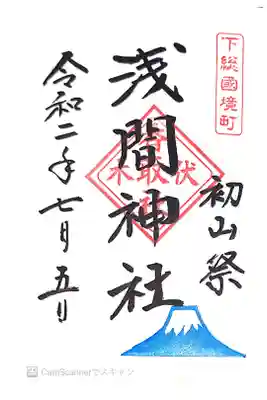 下総國境町
初山祭
浅間神社
令和二年七月五日
伏
取
木
CamScannerでスキャン